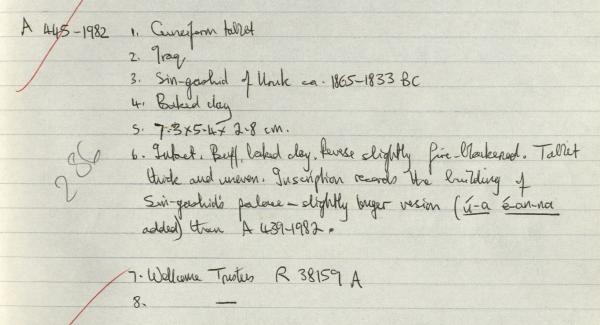 A 445-1982 1. Cuneiform tablet
2. Iraq
3. Sin-gashid of Uruk ca. 1865-1833 BC
4. Baked clay
5. 7.3 x 5.4 x 2.8 cm.
6. Intact. Buff, baked clay. Reverse slightly fire-blackened. Tablet
thick and uneven. Inscription records the building of
Sin-gashid's palace - slightly longer version (ú-a é-an-na
added) than A 439-1982.
286
7. Wellcome Trustees R 38159 A
8. —